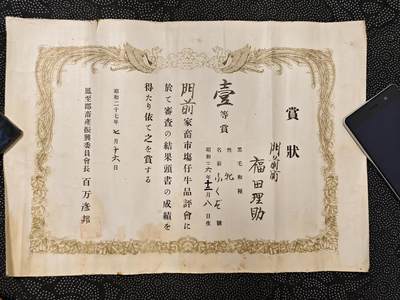 賞狀
門前町
福田理助
壹等賞
黒毛和種
性 牝
名前 ふくだ 號
昭和二六年十一月八日生
門前家畜市塲仔牛品評會に
於て審査の結果頭書の成績を
得たり依て之を賞する
昭和二十七年七月十六日
鳳至郡畜産振興委員會長 百万彦邦